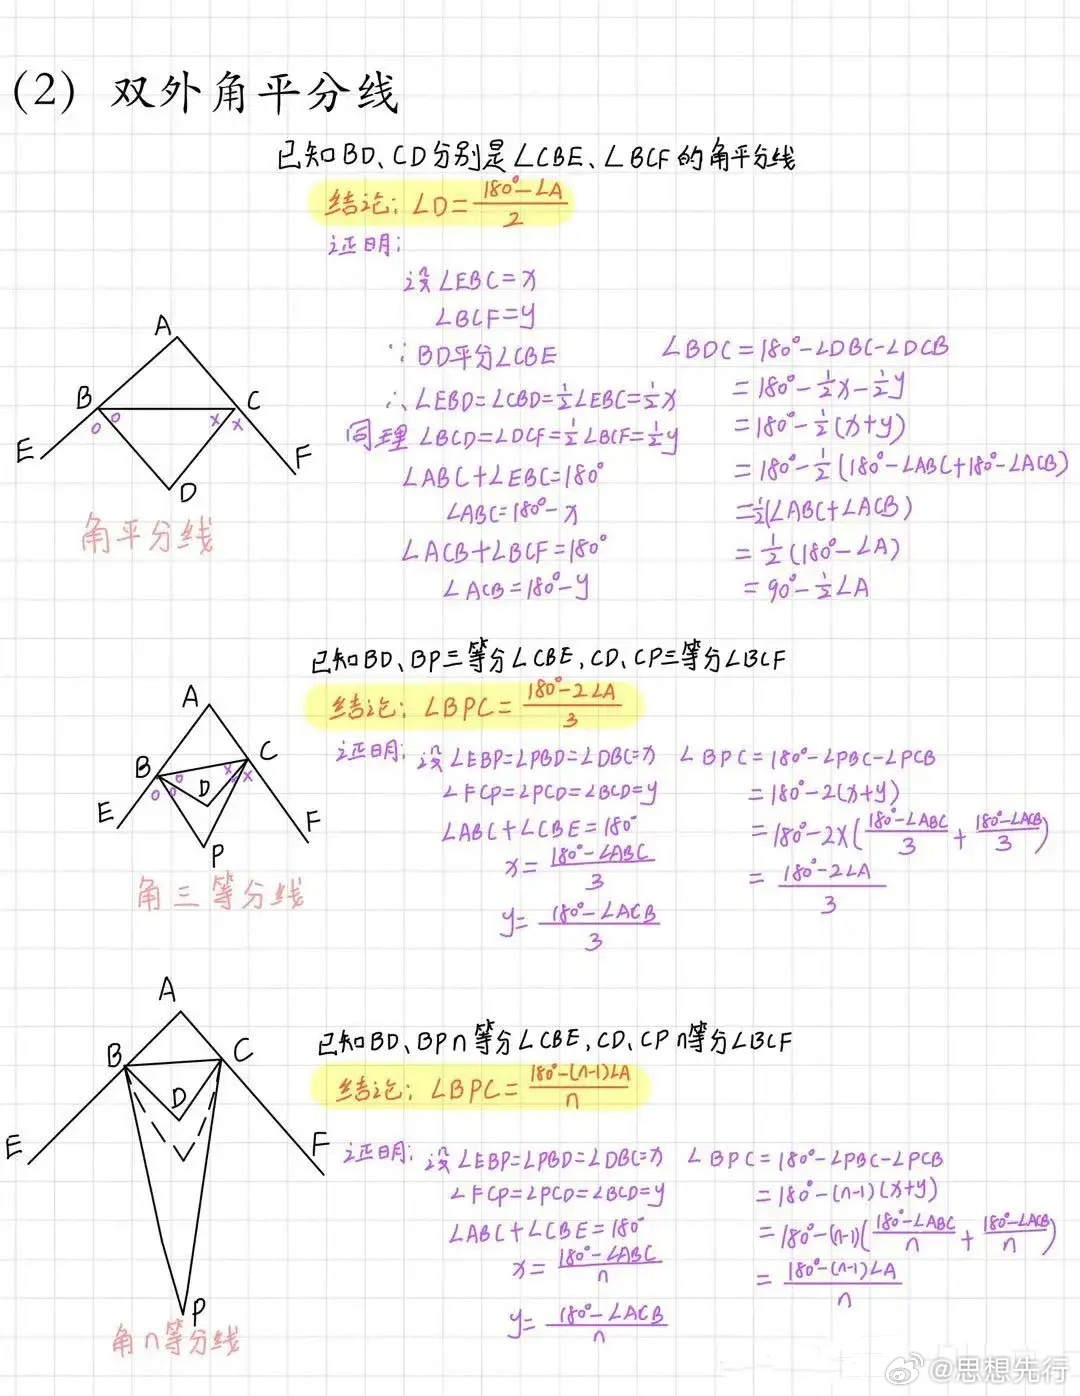 (2) 双外角平分线
已知BD、CD分别是∠CBE、∠BCF的角平分线
结论: ∠D=(180°-∠A)/2
证明:
设∠EBC=x
∠BCF=y
∵BD平分∠CBE
∴∠EBD=∠CBD=½∠EBC=½x
同理 ∠BCD=∠DCF=½∠BCF=½y
∠ABC+∠EBC=180°
∠ABC=180°-x
∠ACB+∠BCF=180°
∠ACB=180°-y
∠BDC=180°-∠DBC-∠DCB
=180°-½x-½y
=180°-½(x+y)
=180°-½(180°-∠ABC+180°-∠ACB)
=½(∠ABC+∠ACB)
=½(180°-∠A)
=90°-½∠A
A
B
C
E
F
D
角平分线
已知BD、BP三等分∠CBE,CD、CP三等分∠BCF
结论: ∠BPC=(180°-2∠A)/3
证明: 设∠EBP=∠PBD=∠DBC=x
∠FCP=∠PCD=∠BCD=y
∠ABC+∠CBE=180°
x=(180°-∠ABC)/3
y=(180°-∠ACB)/3
∠BPC=180°-∠PBC-∠PCB
=180°-2(x+y)
=180°-2×((180°-∠ABC)/3+(180°-∠ACB)/3)
=(180°-2∠A)/3
A
B
C
D
E
F
P
角三等分线
已知BD、BPn等分∠CBE,CD、CPn等分∠BCF
结论: ∠BPC=(180°-(n-1)∠A)/n
证明: 设∠EBP=∠PBD=∠DBC=x
∠FCP=∠PCD=∠BCD=y
∠ABC+∠CBE=180°
x=(180°-∠ABC)/n
y=(180°-∠ACB)/n
∠BPC=180°-∠PBC-∠PCB
=180°-(n-1)(x+y)
=180°-(n-1)((180°-∠ABC)/n+(180°-∠ACB)/n)
=(180°-(n-1)∠A)/n
A
B
C
D
E
F
P
角n等分线
@思想先行